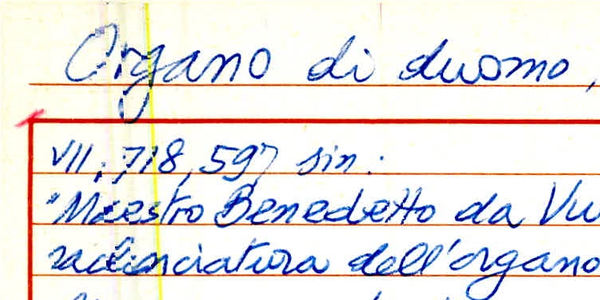 Organo di duomo,
VII, 718, 597 sin:
"Maestro Benedetto da Vu
dell'organo